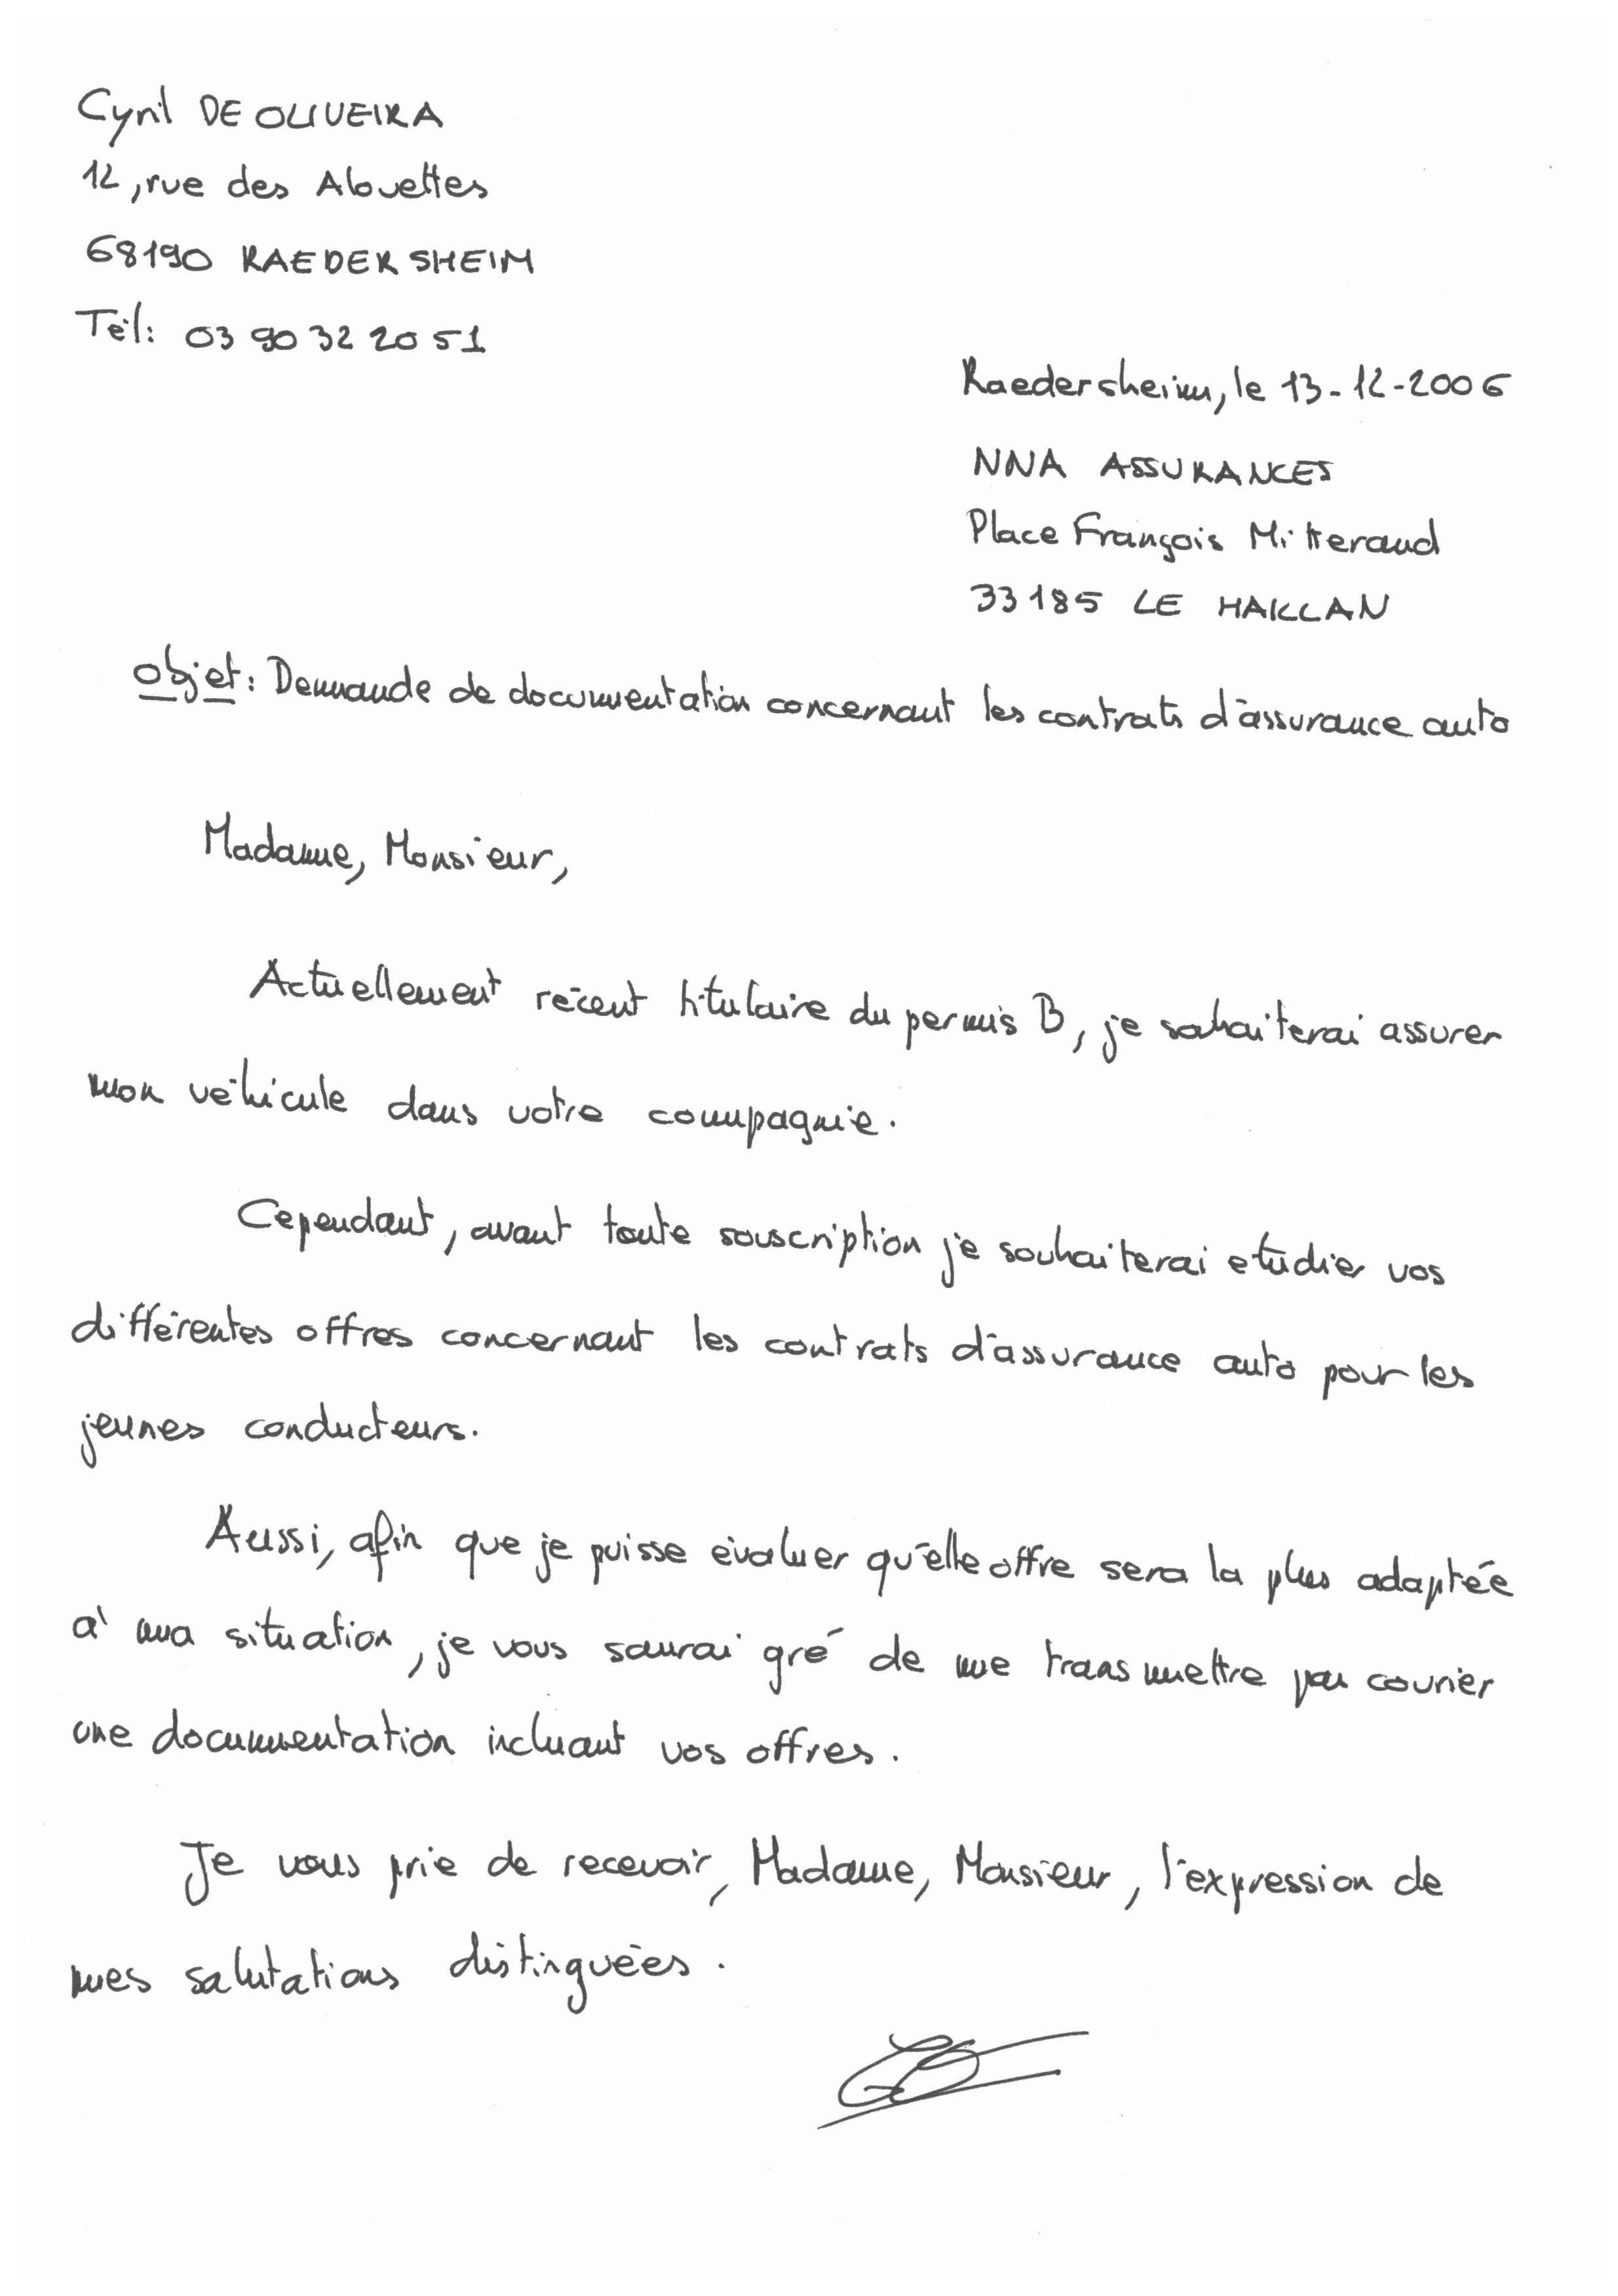 Cyril DE OLIVEIRA
12, rue des Alouettes
68190 RAEDERSHEIM
Tél: 03 90 32 20 51
Raedersheim, le 13-12-2006
NNA ASSURANCES
Place François Mitterand
33185 LE HAILLAN
Objet: Demande de documentation concernant les contrats d'assurance auto
Madame, Monsieur,
Actuellement récent titulaire du permis B, je sohaiterai assurer
mon véhicule dans votre compagnie.
Cependant, avant toute souscription je souhaiterai étudier vos
différentes offres concernant les contrats d'assurance auto pour les
jeunes conducteurs.
Aussi, afin que je puisse évaluer qu'elle offre sera la plus adaptée
à ma situation, je vous saurai gré de me transmettre par courier
une documentation incluant vos offres.
Je vous prie de recevoir, Madame, Monsieur, l'expression de
mes salutations distinguées.